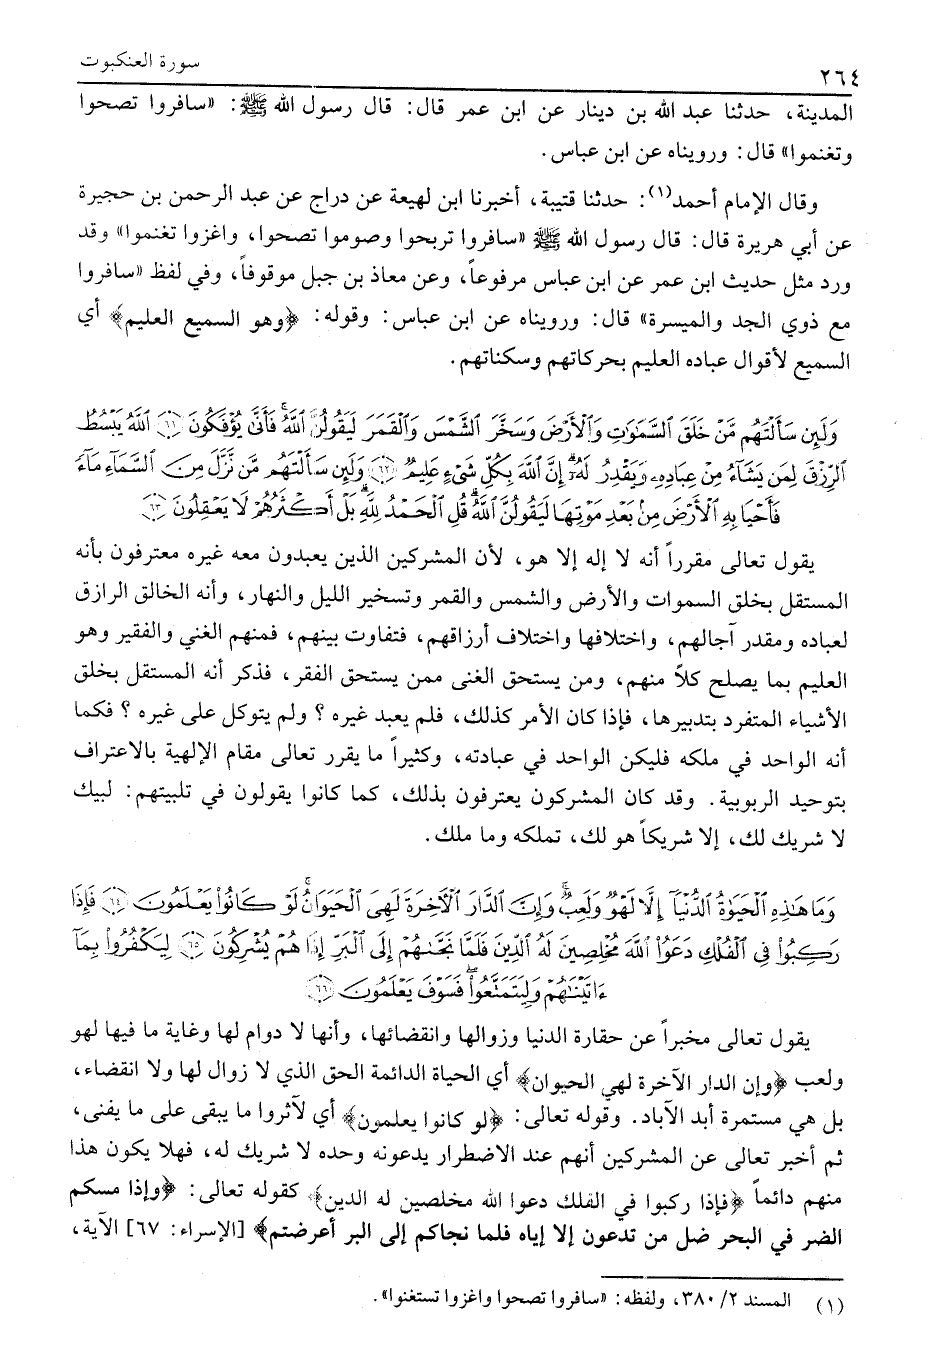 ٢٦٤ سورة العنكبوت
المدينة، حدثنا عبد الله بن دينار عن ابن عمر قال: قال رسول الله ﷺ: «سافروا تصحوا
وتغنموا» قال: ورويناه عن ابن عباس.
وقال الإمام أحمد(١): حدثنا قتيبة، أخبرنا ابن لهيعة عن دراج عن عبد الرحمن بن حجيرة
عن أبي هريرة قال: قال رسول الله ﷺ «سافروا تربحوا وصوموا تصحوا، واغزوا تغنموا» وقد
ورد مثل حديث ابن عمر عن ابن عباس مرفوعاً، وعن معاذ بن جبل موقوفاً، وفي لفظ «سافروا
مع ذوي الجد والميسرة» قال: ورويناه عن ابن عباس: وقوله: ﴿وهو السميع العليم﴾ أي
السميع لأقوال عباده العليم بحركاتهم وسكناتهم.
وَلَئِن سَأَلْتَهُم مَّنْ خَلَقَ ٱلسَّمَٰوَٰتِ وَٱلْأَرْضَ وَسَخَّرَ ٱلشَّمْسَ وَٱلْقَمَرَ لَيَقُولُنَّ ٱللَّهُ ۖ فَأَنَّىٰ يُؤْفَكُونَ ﴿٦١﴾ ٱللَّهُ يَبْسُطُ
ٱلرِّزْقَ لِمَن يَشَآءُ مِنْ عِبَادِهِۦ وَيَقْدِرُ لَهُۥٓ ۚ إِنَّ ٱللَّهَ بِكُلِّ شَىْءٍ عَلِيمٌ ﴿٦٢﴾ وَلَئِن سَأَلْتَهُم مَّن نَّزَّلَ مِنَ ٱلسَّمَآءِ مَآءً
فَأَحْيَا بِهِ ٱلْأَرْضَ مِنۢ بَعْدِ مَوْتِهَا لَيَقُولُنَّ ٱللَّهُ ۚ قُلِ ٱلْحَمْدُ لِلَّهِ ۚ بَلْ أَكْثَرُهُمْ لَا يَعْقِلُونَ ﴿٦٣﴾
يقول تعالى مقرراً أنه لا إله إلا هو، لأن المشركين الذين يعبدون معه غيره معترفون بأنه
المستقل بخلق السموات والأرض والشمس والقمر وتسخير الليل والنهار، وأنه الخالق الرازق
لعباده ومقدر آجالهم، واختلافها واختلاف أرزاقهم، فتفاوت بينهم، فمنهم الغني والفقير وهو
العليم بما يصلح كلاً منهم، ومن يستحق الغنى ممن يستحق الفقر، فذكر أنه المستقل بخلق
الأشياء المتفرد بتدبيرها، فإذا كان الأمر كذلك، فلم يعبد غيره؟ ولم يتوكل على غيره؟ فكما
أنه الواحد في ملكه فليكن الواحد في عبادته، وكثيراً ما يقرر تعالى مقام الإلهية بالاعتراف
بتوحيد الربوبية. وقد كان المشركون يعترفون بذلك، كما كانوا يقولون في تلبيتهم: لبيك
لا شريك لك، إلا شريكاً هو لك، تملكه وما ملك.
وَمَا هَٰذِهِ ٱلْحَيَوٰةُ ٱلدُّنْيَآ إِلَّا لَهْوٌ وَلَعِبٌ ۚ وَإِنَّ ٱلدَّارَ ٱلْءَاخِرَةَ لَهِىَ ٱلْحَيَوَانُ ۚ لَوْ كَانُوا۟ يَعْلَمُونَ ﴿٦٤﴾ فَإِذَا
رَكِبُوا۟ فِى ٱلْفُلْكِ دَعَوُا۟ ٱللَّهَ مُخْلِصِينَ لَهُ ٱلدِّينَ فَلَمَّا نَجَّىٰهُمْ إِلَى ٱلْبَرِّ إِذَا هُمْ يُشْرِكُونَ ﴿٦٥﴾ لِيَكْفُرُوا۟ بِمَآ
ءَاتَيْنَٰهُمْ وَلِيَتَمَتَّعُوا۟ ۖ فَسَوْفَ يَعْلَمُونَ ﴿٦٦﴾
يقول تعالى مخبراً عن حقارة الدنيا وزوالها وانقضائها، وأنها لا دوام لها وغاية ما فيها لهو
ولعب ﴿وإن الدار الآخرة لهي الحيوان﴾ أي الحياة الدائمة الحق الذي لا زوال لها ولا انقضاء،
بل هي مستمرة أبد الآباد. وقوله تعالى: ﴿لو كانوا يعلمون﴾ أي لآثروا ما يبقى على ما يفنى،
ثم أخبر تعالى عن المشركين أنهم عند الاضطرار يدعونه وحده لا شريك له، فهلا يكون هذا
منهم دائماً ﴿فإذا ركبوا في الفلك دعوا الله مخلصين له الدين﴾ كقوله تعالى: ﴿وإذا مسكم
الضر في البحر ضل من تدعون إلا إياه فلما نجاكم إلى البر أعرضتم﴾ [الإسراء: ٦٧] الآية،
(١) المسند ٢/ ٣٨٠، ولفظه: «سافروا تصحوا واغزوا تستغنوا».